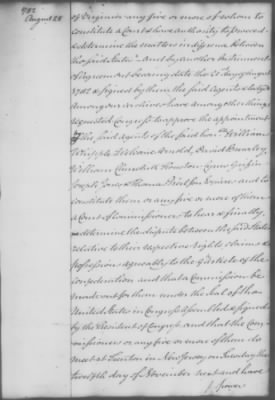 1782
August 28
of Virginia any five or more of whom to
constitute a Court & have authority to proceed
& determine the matters in difference between
the said States. And by another Instrument
of Agreement bearing date the day of August
1782 & signed by them the said agents & lodged
among our Archives have among other things
requested Congress to approve the appointment
of the said agents of the said honble William
Whipple Welcome Arnold, David Brearley
William Churchill Houston Cyrus Griffin
Joseph Jones & Thomas Nelson Esquires and to
constitute them or any five or more of them
a Court of Commissioners to hear & finally
determine the dispute between the said States
relative to their respective Rights claims &
possessions agreeably to the 9 Article of the
confederation and that a Commission be
made out for them under the Seal of the
United States in Congress assembled & signed
by the President of Congress and that the Com
missioners or any five or more of them do
meet at Trenton in New Jersey on Tuesday the
twelfth day of November next and have
power